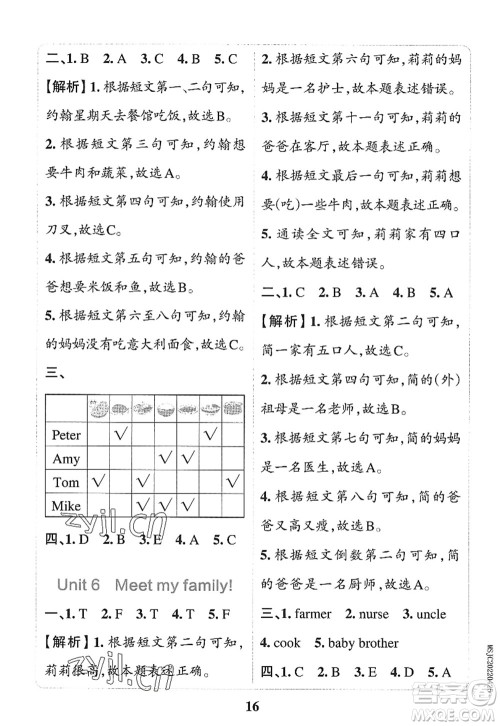 二、1. B　2. A　3. C　4. B　5. C
【解析】1. 根据短文第一、二句可知，
约翰星期天去餐馆吃饭，故选B。
2. 根据短文第三句可知，约翰想
要牛肉和蔬菜，故选A。
3. 根据短文第四句可知，约翰使用
刀叉，故选C。
4. 根据短文第五句可知，约翰的爸
爸想要米饭和鱼，故选A。
5. 根据短文第六至八句可知，约翰
的妈妈没有吃意大利面食，故选C。
三、
Peter √ √
Amy √ √
Tom √ √
Mike √ √ √
四、1. D　2. B　3. E　4. A　5. C
Unit 6　Meet my family!
一、1. T　2. F　3. T　4. T　5. F
【解析】1. 根据短文第二句可知，
莉莉很高，故本题表述正确。
2. 根据短文第六句可知，莉莉的妈
妈是一名护士，故本题表述错误。
3. 根据短文第十一句可知，莉莉的
爸爸在客厅，故本题表述正确。
4. 根据短文最后一句可知，莉莉想
要(吃)一些牛肉，故本题表述正确。
5. 通读全文可知，莉莉家有四口
人，故本题表述错误。
二、1. C　2. B　3. A　4. B　5. A
【解析】1. 根据短文第二句可知，
简家有五口人，故选C。
2. 根据短文第四句可知，简的(外)
祖母是一名老师，故选B。
3. 根据短文第七句可知，简的妈妈
是一名医生，故选A。
4. 根据短文第八句可知，简的爸
爸又高又瘦，故选B。
5. 根据短文倒数第二句可知，简的
爸爸是一名厨师，故选A。
三、1. farmer　2. nurse　3. uncle
4. cook　5. baby brother
四、1. C　2. A　3. B　4. D　5. A
16
zyjl.cn
zyjl.cn